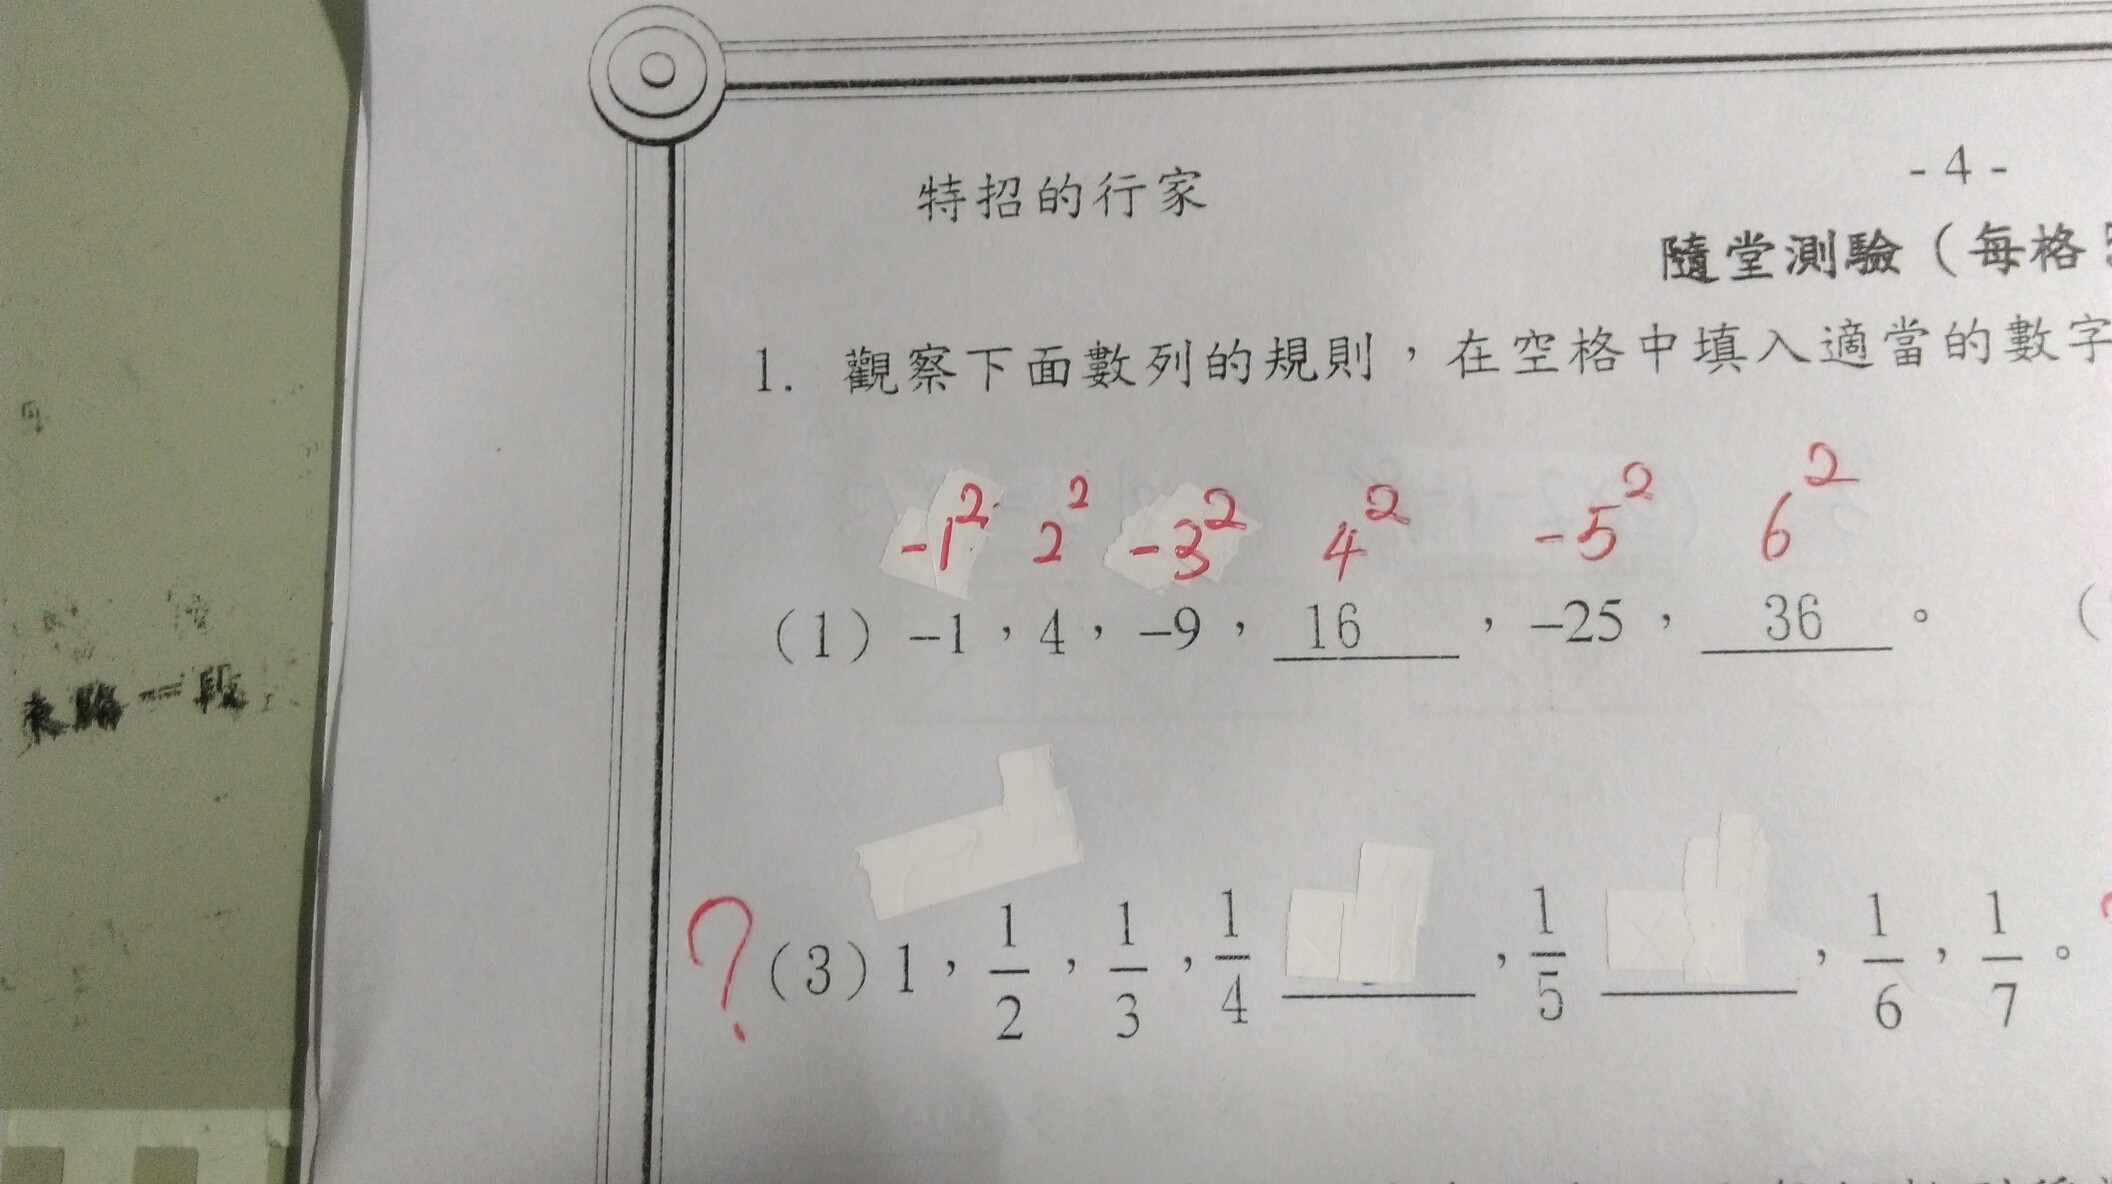 特招的行家
- 4 -
隨堂測驗（每格
1. 觀察下面數列的規則，在空格中填入適當的數字
-1² 2² -3² 4² -5² 6²
(1) -1，4，-9， 16 ，-25， 36 。 (
? (3) 1，1/2，1/3，1/4 ____，1/5 ____，1/6，1/7。
路一段